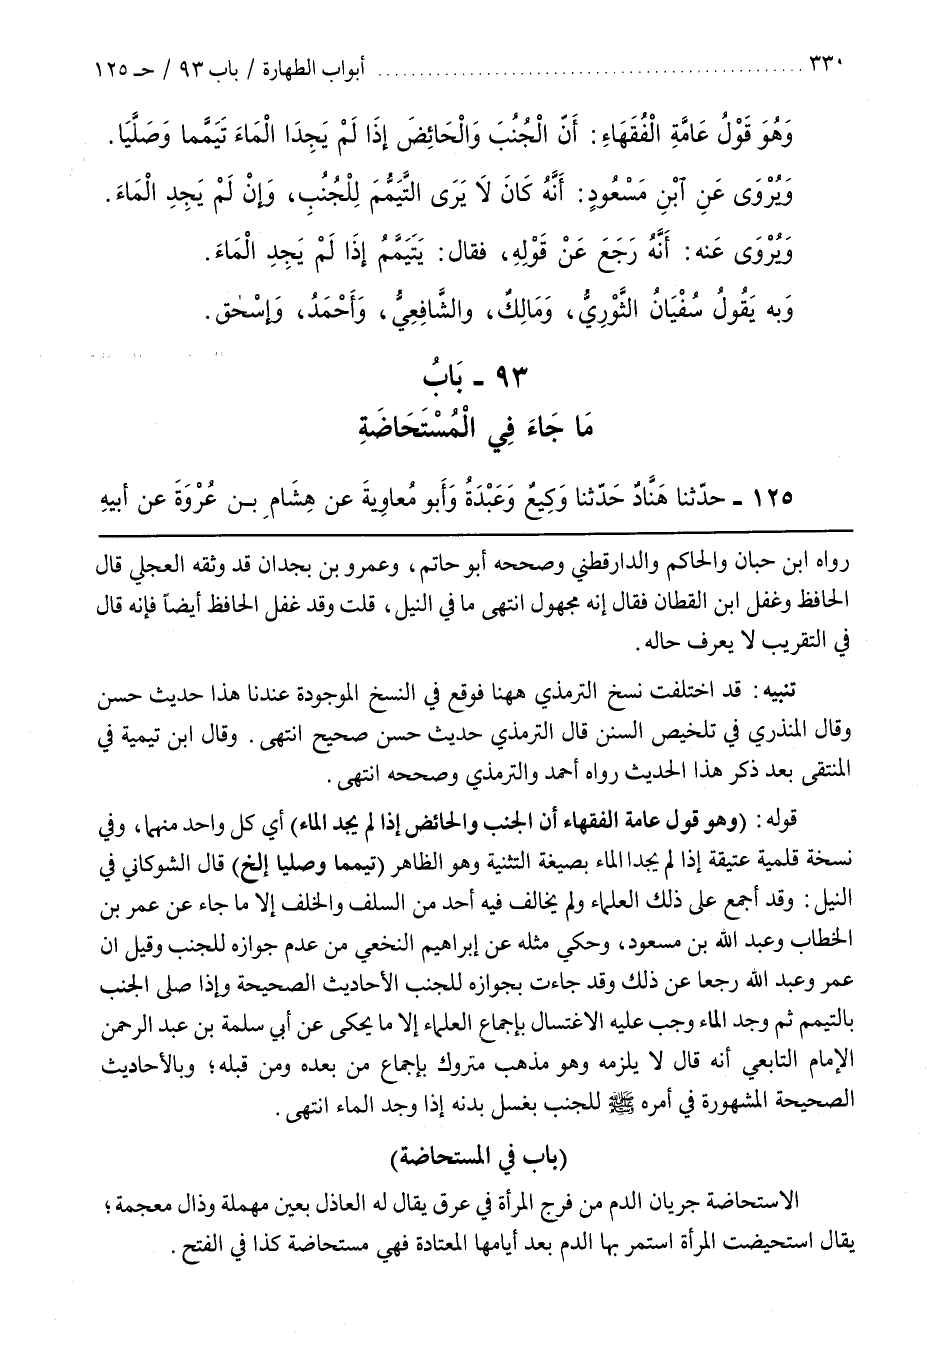 ٣٣٠ ................................................ أبواب الطهارة / باب ٩٣ / حـ ١٢٥
وَهُوَ قَوْلُ عَامَّةِ الْفُقَهَاءِ: أَنّ الْجُنُبَ وَالْحَائِضَ إذَا لَمْ يَجِدَا الْمَاءَ تَيَمَّما وَصَلَّيَا.
وَيُرْوَى عَنِ ٱبْنِ مَسْعُودٍ: أَنَّهُ كَانَ لَا يَرَى التَّيَمُّمَ لِلْجُنُبِ، وَإنْ لَمْ يَجِدِ الْمَاءَ.
وَيُرْوَى عَنه: أَنَّهُ رَجَعَ عَنْ قَوْلِهِ، فقال: يَتَيَمَّمُ إذَا لَمْ يَجِدِ الْمَاءَ.
وَبه يَقُولُ سُفْيَانُ الثَّوْرِيُّ، وَمَالِكٌ، والشَّافِعِيُّ، وَأَحْمَدُ، وَإسْحٰق.
٩٣ - بَابُ
مَا جَاءَ فِي الْمُسْتَحَاضَةِ
١٢٥ - حدّثنا هَنَّادٌ حَدّثنا وَكِيعٌ وَعَبْدَةُ وَأَبو مُعاوِيةَ عن هِشَامِ بـن عُرْوَةَ عن أبيهِ
رواه ابن حبان والحاكم والدارقطني وصححه أبو حاتم، وعمرو بن بجدان قد وثقه العجلي قال
الحافظ وغفل ابن القطان فقال إنه مجهول انتهى ما في النيل، قلت وقد غفل الحافظ أيضاً فإنه قال
في التقريب لا يعرف حاله.
تنبيه: قد اختلفت نسخ الترمذي ههنا فوقع في النسخ الموجودة عندنا هذا حديث حسن
وقال المنذري في تلخيص السنن قال الترمذي حديث حسن صحيح انتهى. وقال ابن تيمية في
المنتقى بعد ذكر هذا الحديث رواه أحمد والترمذي وصححه انتهى.
قوله: (وهو قول عامة الفقهاء أن الجنب والحائض إذا لم يجد الماء) أي كل واحد منهما، وفي
نسخة قلمية عتيقة إذا لم يجدا الماء بصيغة التثنية وهو الظاهر (تيمما وصليا إلخ) قال الشوكاني في
النيل: وقد أجمع على ذلك العلماء ولم يخالف فيه أحد من السلف والخلف إلا ما جاء عن عمر بن
الخطاب وعبد الله بن مسعود، وحكي مثله عن إبراهيم النخعي من عدم جوازه للجنب وقيل ان
عمر وعبد الله رجعا عن ذلك وقد جاءت بجوازه للجنب الأحاديث الصحيحة وإذا صلى الجنب
بالتيمم ثم وجد الماء وجب عليه الاغتسال بإجماع العلماء إلا ما يحكى عن أبي سلمة بن عبد الرحمن
الإمام التابعي أنه قال لا يلزمه وهو مذهب متروك بإجماع من بعده ومن قبله؛ وبالأحاديث
الصحيحة المشهورة في أمره ﷺ للجنب بغسل بدنه إذا وجد الماء انتهى.
(باب في المستحاضة)
الاستحاضة جريان الدم من فرج المرأة في عرق يقال له العاذل بعين مهملة وذال معجمة؛
يقال استحيضت المرأة استمر بها الدم بعد أيامها المعتادة فهي مستحاضة كذا في الفتح.